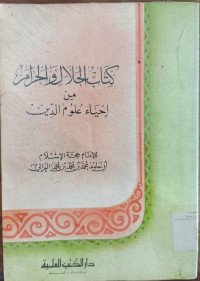 كتاب الحلال والحرام
من
إحياء علوم الدين
للإمام حجة الإسلام
أبي حامد محمد بن محمد بن محمد الغزالي
دار الكتب العلمية